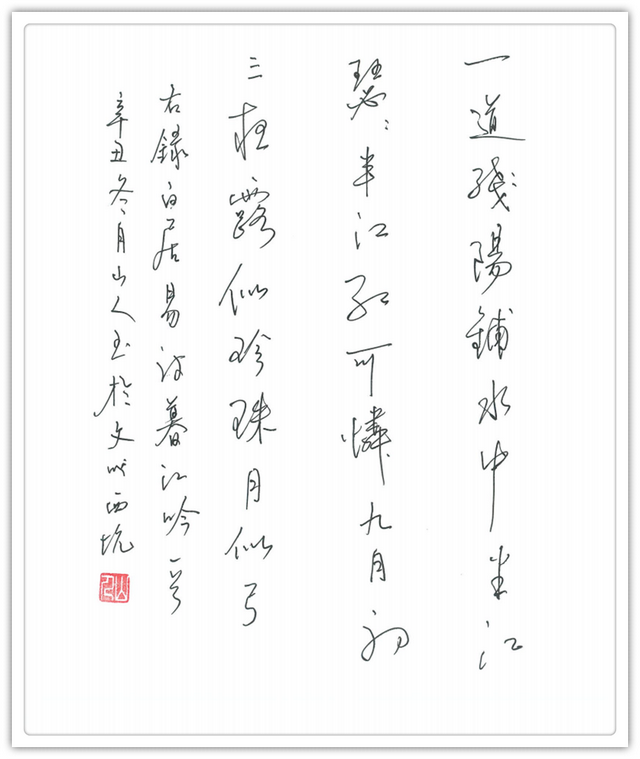 一道殘陽鋪水中半江
瑟〻半江紅可憐九月初
三夜露似珍珠月似弓
右録白居易詩暮江吟一首
辛丑冬月山人書於文成西坑